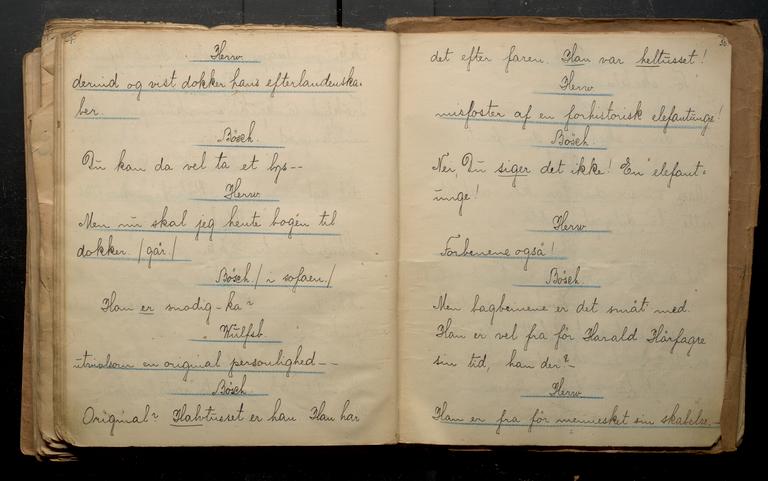 Herw.
derind og vist dokker hans efterladenska-
ber.
Bösch.
Du kan da vel ta et lys--
Herw
Men nu skal jeg hente bogen til
dokker. /går./
Bösch. / i sofaen./
Han er snodig-ka?
Wulfsb.
utvilsom en original personlighed--
Bösch.
Original? Halvtusset er han. Han har
36.
det efter faren. Han var heltusset!
Herw
misfoster af en forhistorisk elefantunge!
Bösch.
Nei, Du siger det ikke! En elefant-
unge!
Herw
Forbenene også!
Bösch
Men bagbenene er det småt med.
Han er vel fra för Harald Hårfagre
sin tid, han der?-
Herw
Han er fra för mennesket sin skabelse.-